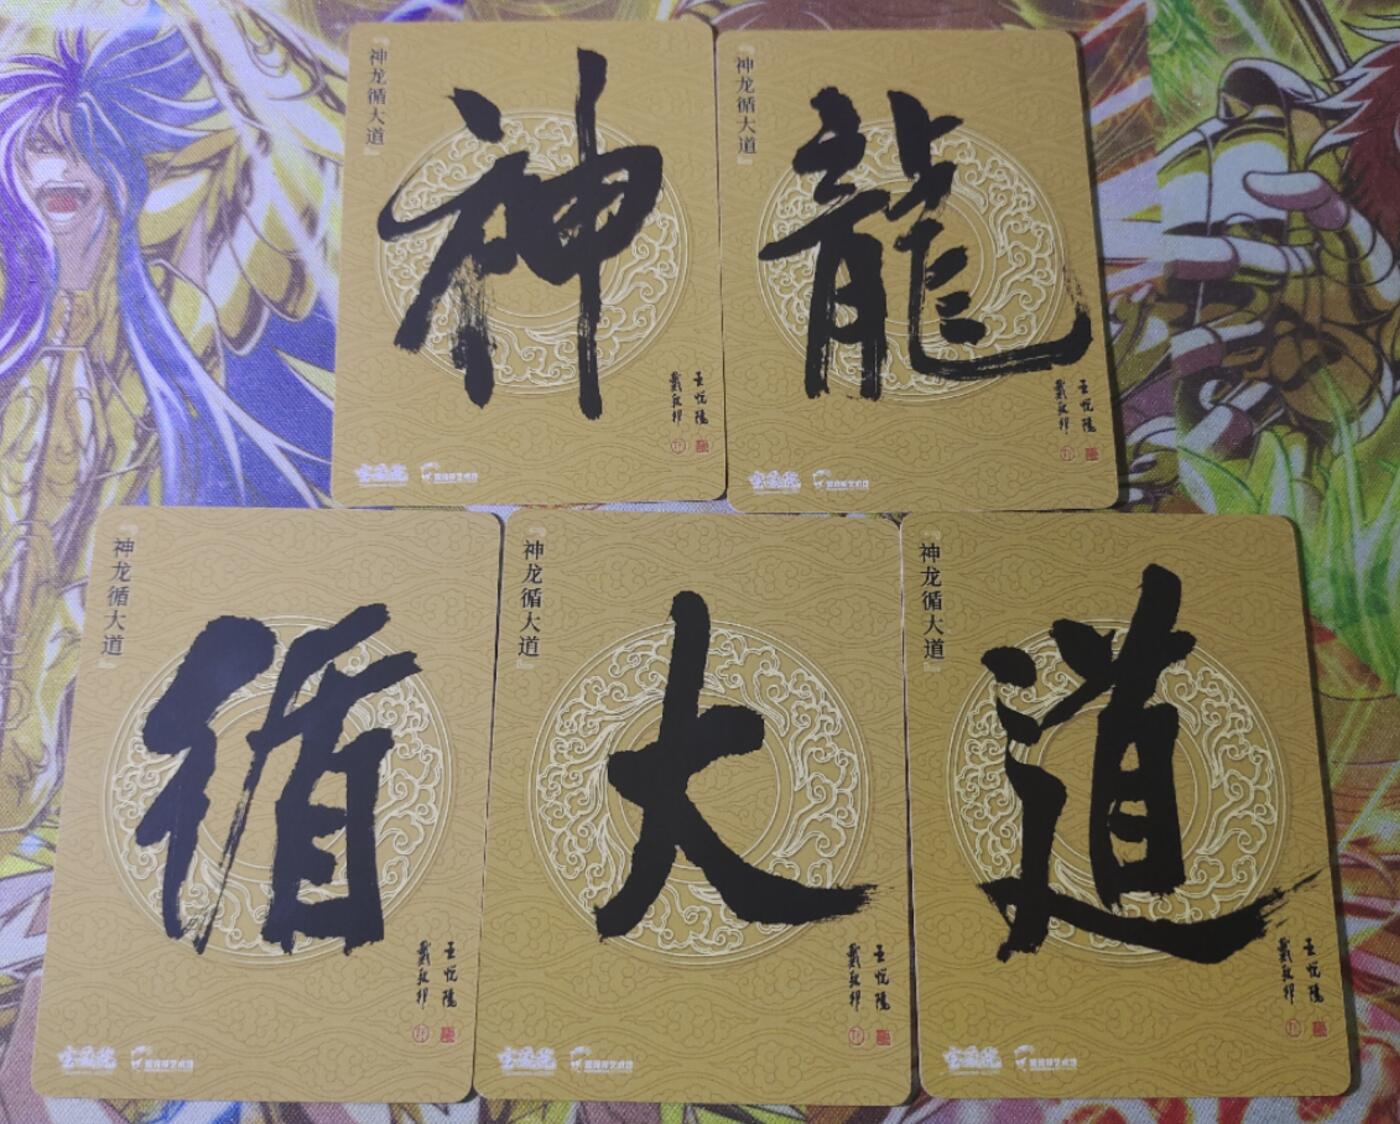 『神龙循大道』
神
王悦阳
戴敦邦
『神龙循大道』
龍
王悦阳
戴敦邦
『神龙循大道』
循
王悦阳
戴敦邦
『神龙循大道』
大
王悦阳
戴敦邦
『神龙循大道』
道
王悦阳
戴敦邦